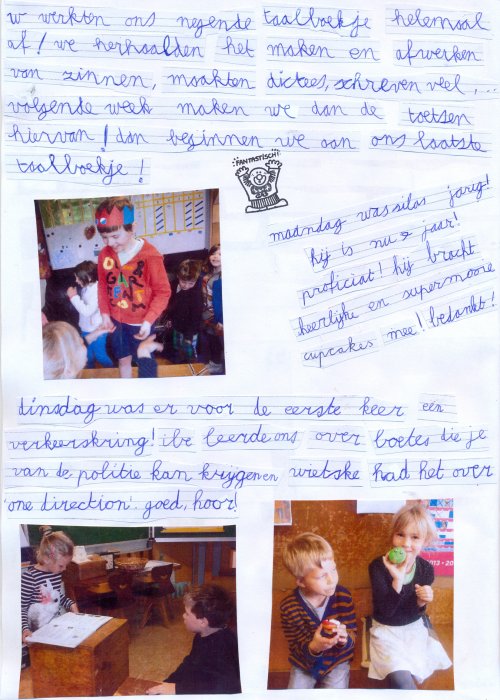 w werkten ons negende taalboekje helemaal
af! we herhaalden het maken en afwerken
van zinnen, maakten dictees, schreven veel, ...
volgende week maken we dan de toetsen
hiervan! dan beginnen we aan ons laatste
taalboekje!
FANTASTISCH!
maandag was silas jarig!
hij is nu 7 jaar!
proficiat! hij bracht
heerlijke en supermooie
cupcakes mee! bedankt!
dinsdag was er voor de eerste keer een
verkeerskring! ibe leerde ons over boetes die je
van de politie kan krijgen en wietske had het over
'one direction'. goed, hoor!
2013 - 20